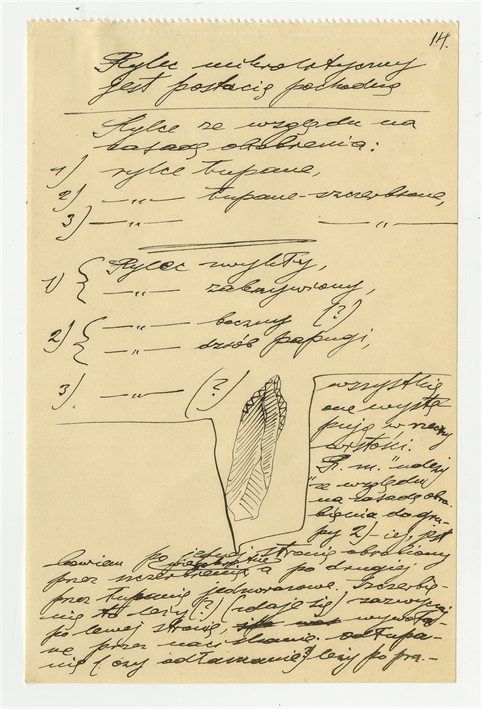 14.
Rylec mikrolityczny
jest postacią pochodną
Rylce ze względu na
zasadę obrobienia:
1) rylce łupane,
2) —„— łupane-szczerbione,
3) —„— —„—
1) { Rylec zwykły,
—„— zakrzywiony,
2) { —„— boczny (?)
—„— dziób papugi,
3) —„— (?)
wszystkie
one wystę
pują w rzeczy
wistości.
R. m. należy
ze względu
na zasadę obro-
bienia do gru-
py 2)-iej, jest
bowiem po jednej stronie obrobiony
przez szczerbienie, a po drugiej
przez łupanie jednorazowe. Szczerbie-
nie to leży (?) (zdaje się) zazwyczaj
po lewej stronie, wywoła-
ne przez naciskanie. odłupa-
nie (czy odłamanie?) leży po pra-